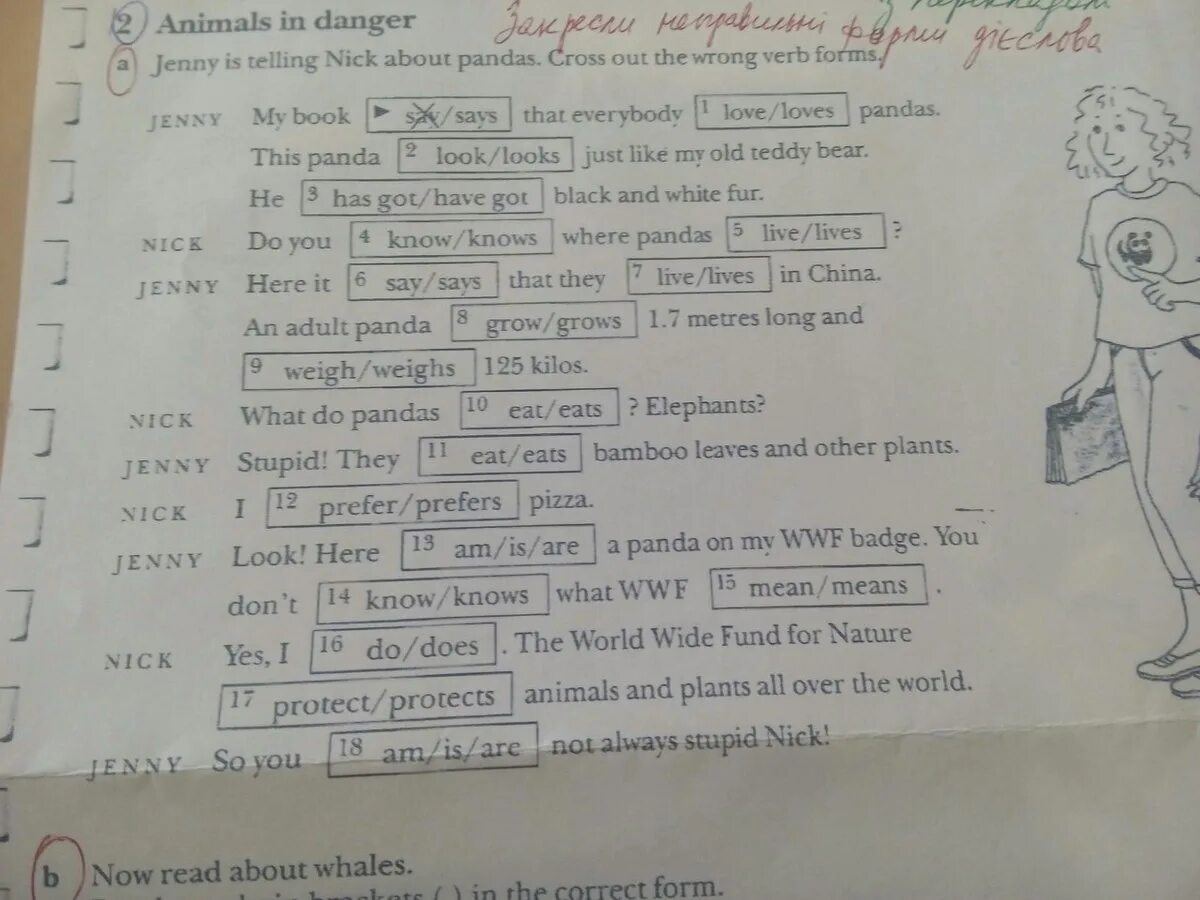 з перекладом
2 Animals in danger Закресли неправильні форми дієслова
a Jenny is telling Nick about pandas. Cross out the wrong verb forms.
JENNY My book ► say/says that everybody 1 love/loves pandas.
This panda 2 look/looks just like my old teddy bear.
He 3 has got/have got black and white fur.
NICK Do you 4 know/knows where pandas 5 live/lives ?
JENNY Here it 6 say/says that they 7 live/lives in China.
An adult panda 8 grow/grows 1.7 metres long and
9 weigh/weighs 125 kilos.
NICK What do pandas 10 eat/eats ? Elephants?
JENNY Stupid! They 11 eat/eats bamboo leaves and other plants.
NICK I 12 prefer/prefers pizza.
JENNY Look! Here 13 am/is/are a panda on my WWF badge. You
don't 14 know/knows what WWF 15 mean/means .
NICK Yes, I 16 do/does . The World Wide Fund for Nature
17 protect/protects animals and plants all over the world.
JENNY So you 18 am/is/are not always stupid Nick!
b Now read about whales.
brackets ( ) in the correct form.